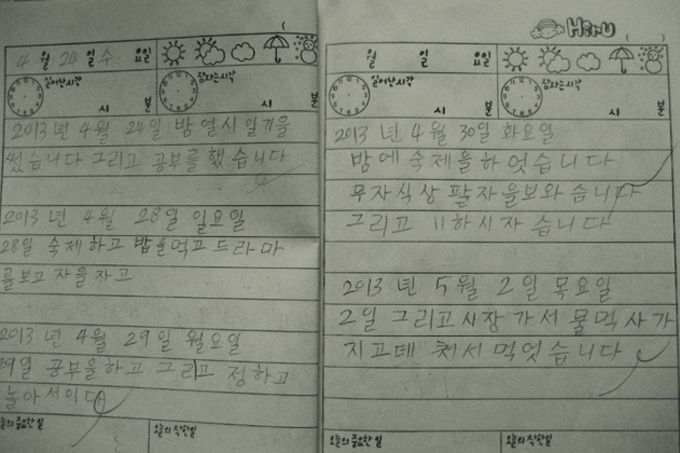 4월 24일 수요일
일어난시각 잠자는시각
시 분 시 분
2013년 4월 24일 밤 열시 일기을
썼습니다 그리고 공부를 했습니다
2013년 4월 28일 일요일
28일 숙제하고 밥을먹고 드라마
를보고 자을자고
2013년 4월 29일 월요일
29일 공부을하고 그리고 정하고
놀아서이다
오늘의 중요한일 오늘의 착한일
Hiru
월 일 요일
일어난시각 잠자는시각
시 분 시 분
2013년 4월 30일 화요일
밤에 숙제을하엇습니다
무자식상팔자을보와습니다
그리고 11하시자습니다
2013년 5월 2일 목요일
2일 그리고시장가서 물먹사가
지고데쳐서먹엇습니다
오늘의 중요한일 오늘의 착한일